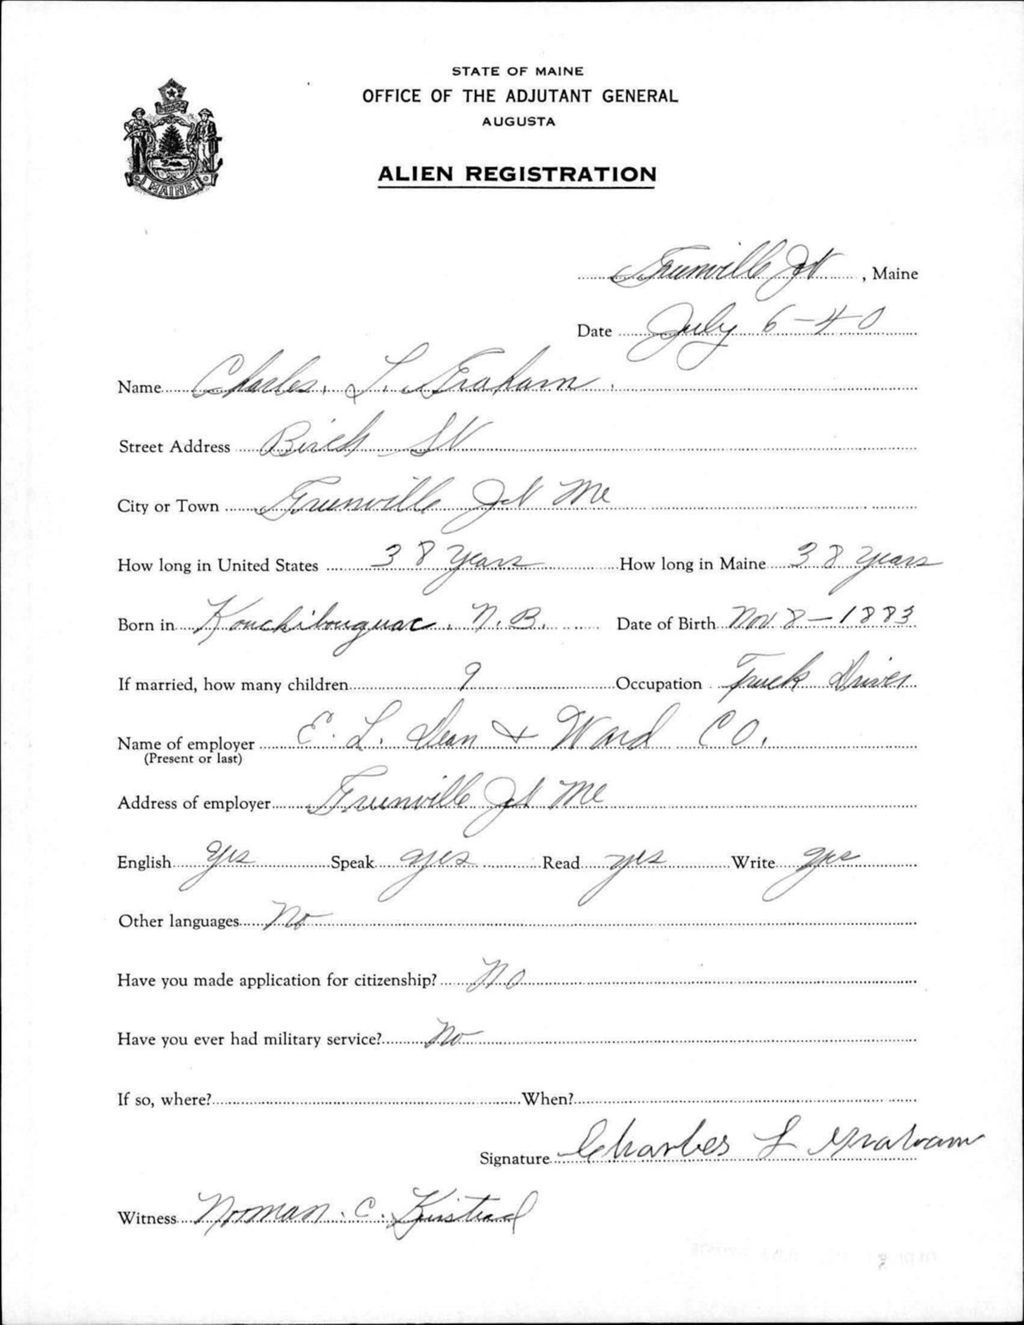 STATE OF MAINE
OFFICE OF THE ADJUTANT GENERAL
AUGUSTA
ALIEN REGISTRATION
MAINE
Greenville Jct, Maine
Date July 6-40
Name Charles. L. Graham.
Street Address Birch St
City or Town Greenville Jct Me
How long in United States 38 years How long in Maine 38 years
Born in Kouchibouguac. N.B. Date of Birth Nov 8-1883
If married, how many children 9 Occupation Truck Driver
Name of employer E. L. Dean + Ward CO.
(Present or last)
Address of employer Greenville Jct Me
English Yes Speak yes Read yes Write yes
Other languages No
Have you made application for citizenship? No
Have you ever had military service? No
If so, where? When?
Signature Charles L Graham
Witness Norman. C.